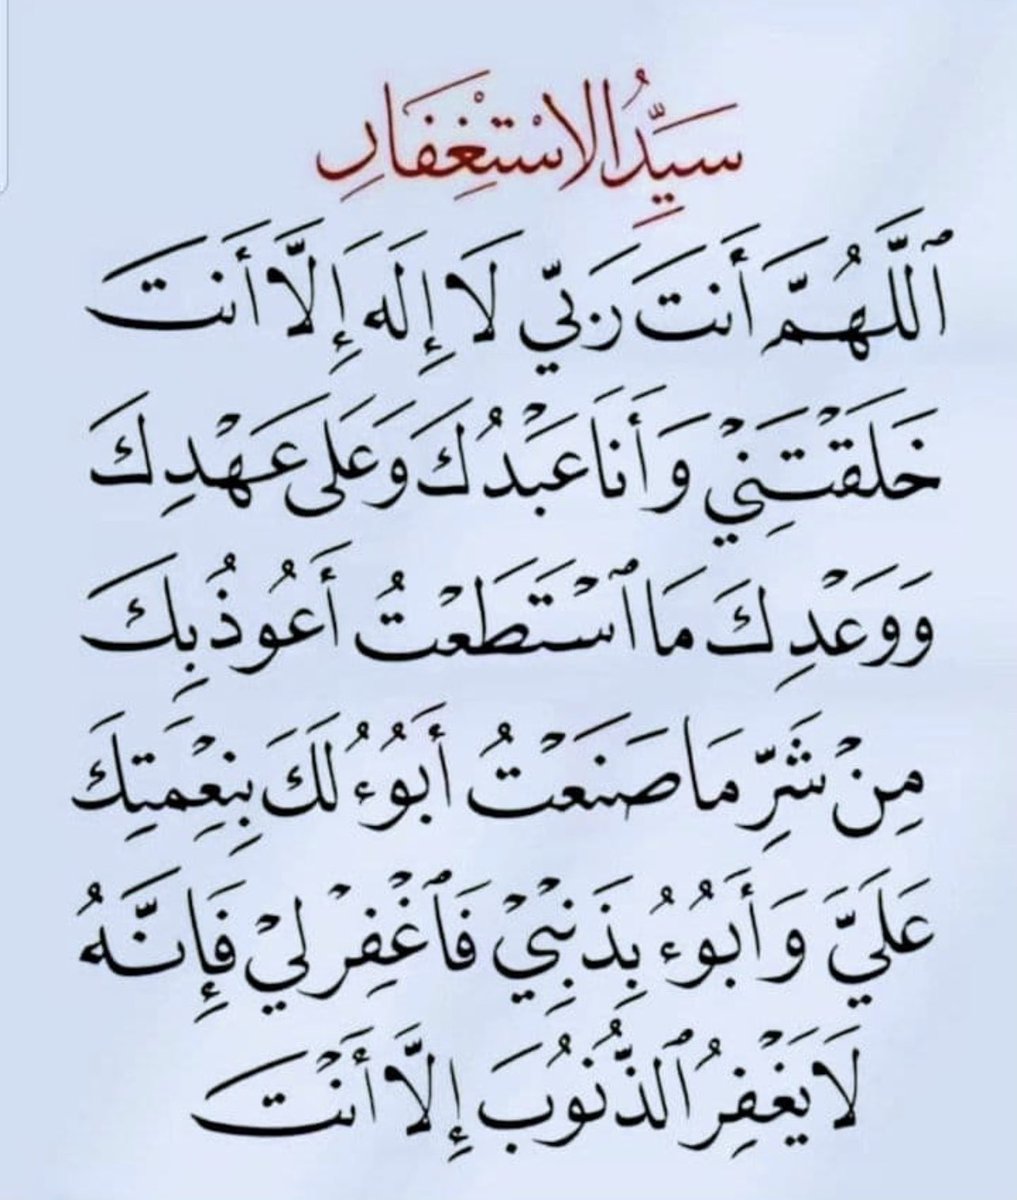 سَيِّدُ الاسْتِغْفَارِ
ٱللَّهُمَّ أَنتَ رَبِّي لَا إِلَهَ إِلَّا أَنتَ
خَلَقْتَنِي وَأَنَا عَبْدُكَ وَعَلَى عَهْدِكَ
وَوَعْدِكَ مَا ٱسْتَطَعْتُ أَعُوذُ بِكَ
مِنْ شَرِّ مَا صَنَعْتُ أَبُوءُ لَكَ بِنِعْمَتِكَ
عَلَيَّ وَأَبُوءُ بِذَنْبِي فَٱغْفِرْ لِيْ فَإِنَّهُ
لَا يَغْفِرُ ٱلذُّنُوبَ إِلَّا أَنْتَ